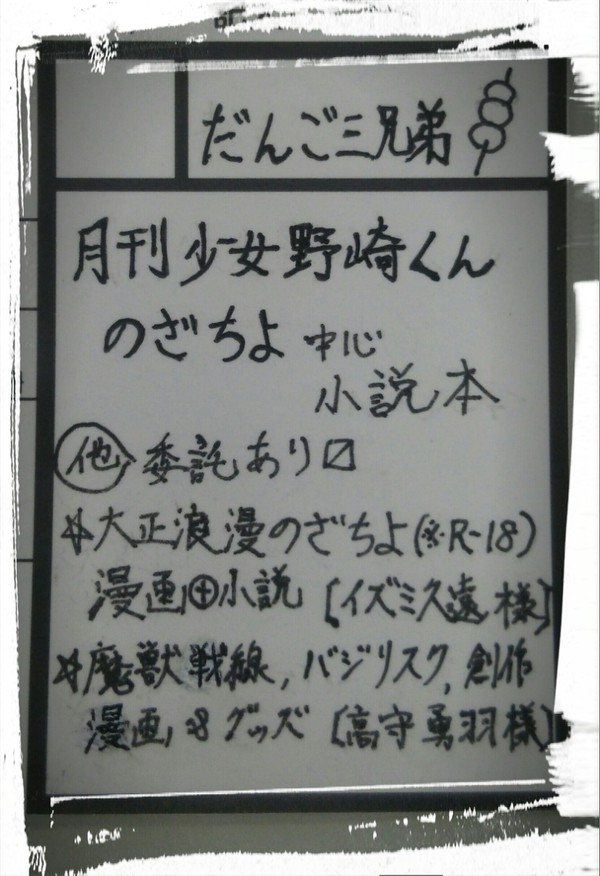 だんご三兄弟
月刊少女野崎くん
のざちよ中心
小説本
他 委託あり〼
☆大正浪漫のざちよ(※R-18)
漫画⊕小説 [イズミ久遠様]
☆魔獣戦線,バジリスク,創作
漫画&グッズ [高守勇羽様]